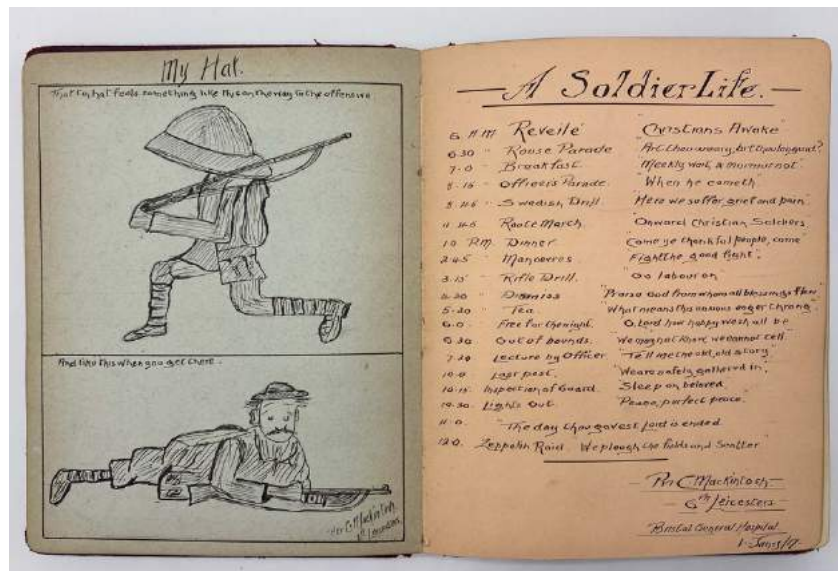 My Hat.
That tin hat feels something like this on the way to the offensive
And like this when you get there.
Pte C. Mackintosh
Leicesters
— A Soldier Life. —
Reveile "Christians Awake"
6-30 " Rouse Parade "Art thou weary, art thou languid?
7-0 " Breakfast. "Meekly wait, & murmur not"
8-15 " Officers Parade. "When he cometh"
8-45 " Swedish Drill. "Here we suffer grief and pain"
11-45 Route March. Onward Christian Soldiers
1-0 P.M. Dinner "Come ye thankful people, come"
2-45 " Manoevres "Fight the good fight".
3-15 " Rifle Drill. "Go labour on"
Dismiss "Praise God from whom all blessings flow"
5-20 " Tea. What means this anxious eager throng.
6-0 " Free for the night. O Lord how happy we shall be
6-30 " Out of bounds. "We may not know, we cannot tell"
7-30 Lecture by Officer "Tell me the old, old story"
10-0 " Last post. "We are safely gathered in".
10-15 Inspection of Guard. Sleep on beloved
10-30 Lights Out Peace, perfect peace.
11-0. "The day thou gavest Lord is ended
12-0. Zeppelin Raid. We plough the fields and scatter"
C. Mackintosh
— 6th Leicesters —
Bristol General Hospital